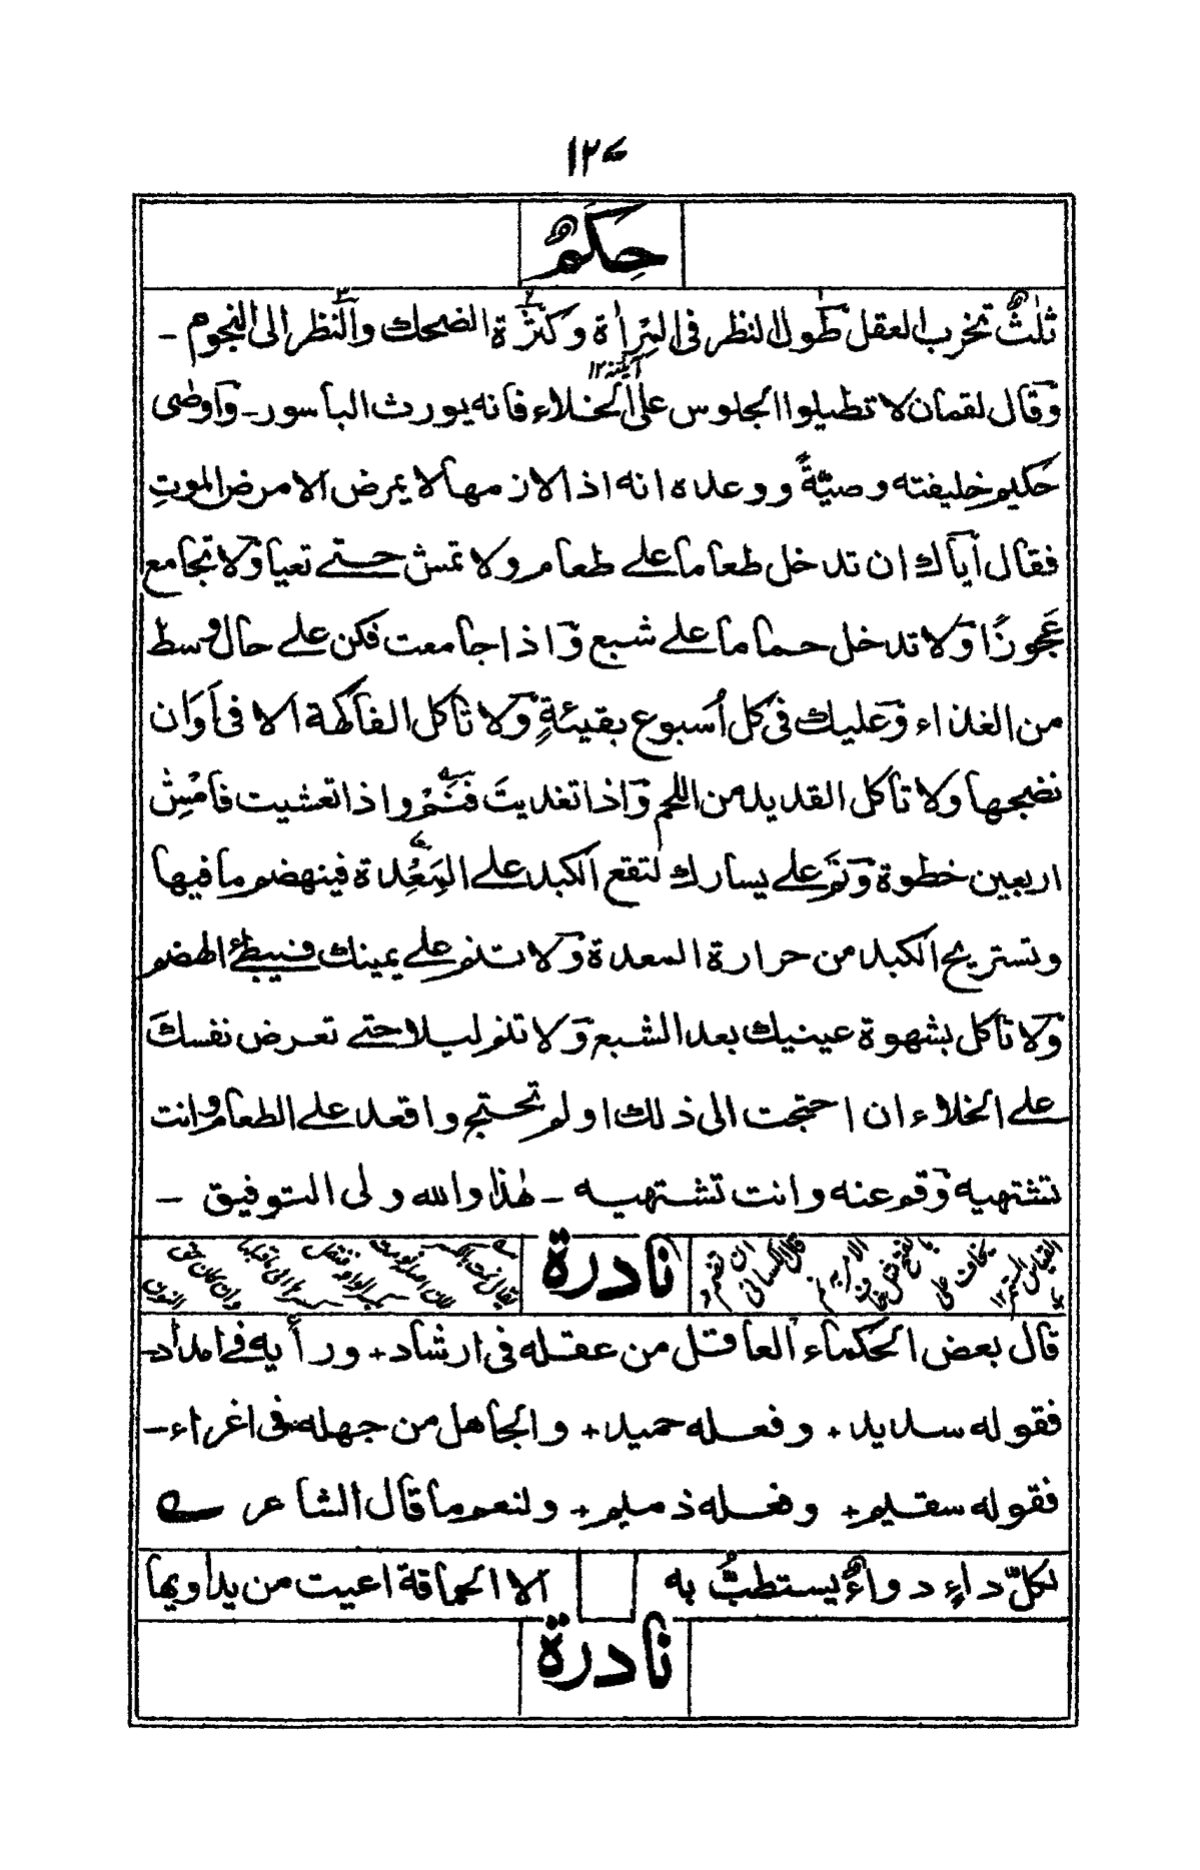 ١٢٧
حِكَمٌ
ثلٰثٌ تخرب العقل طَول النظر فى المِرأة وَكَثرة الضحك وَالنظر الى النجوم ــ
آئينه ١٢
وَقال لقمان لا تطيلوا الجلوس على الخلاء فانه يورث الباسور ــ وَاوصٰى
حَكيم خليفته وصيّةً ووعده انه اذا لازمها لا يمرض الا مرض الموتِ
فقال أياك ان تدخل طعاما على طعام ولا تمش حتى تعيا وَلا تجامع
عَجوزًا وَلا تدخل حماما على شبع وَاذا جامعت فكن على حال وسط
من الغذاء وَعليك فى كل اُسبوع بقيئةٍ وَلا تأكل الفاكهة الا فى اَوَان
نضجها ولا تأكل القديد من اللحم وَاذا تغديتَ فَنَمْ واذا تعشيت فامْشِ
اربعين خطوة وَنَم على يسارك لتقع الكبد على المِعْدة فينهضم ما فيها
وتستريح الكبد من حرارة المعدة وَلا تنم على يمينك فيبطئ الهضم
وَلا تأكل بشهوة عينيك بعد الشبع وَلا تنم ليلا حتى تعرض نفسكَ
على الخلاء ان احتجت الى ذلك او لم تحتج واقعد على الطعام وانت
تشتهيه وَقم عنه وانت تشتهيه ــ هٰذا والله ولى التوفيق ــ
نادرة
قال بعض الحكماء العاقل من عقله فى ارشاد + ورأيه فى امداد ــ
فقوله سديد + وفعله حميد + والجاهل من جهله فى اغراء ــ
فقوله سقيم + وفعله ذميم + ولنعم ما قال الشاعر
لكلّ داءٍ دواءٌ يستطبُّ به الا الحماقة اعيت من يداويها
نادرة